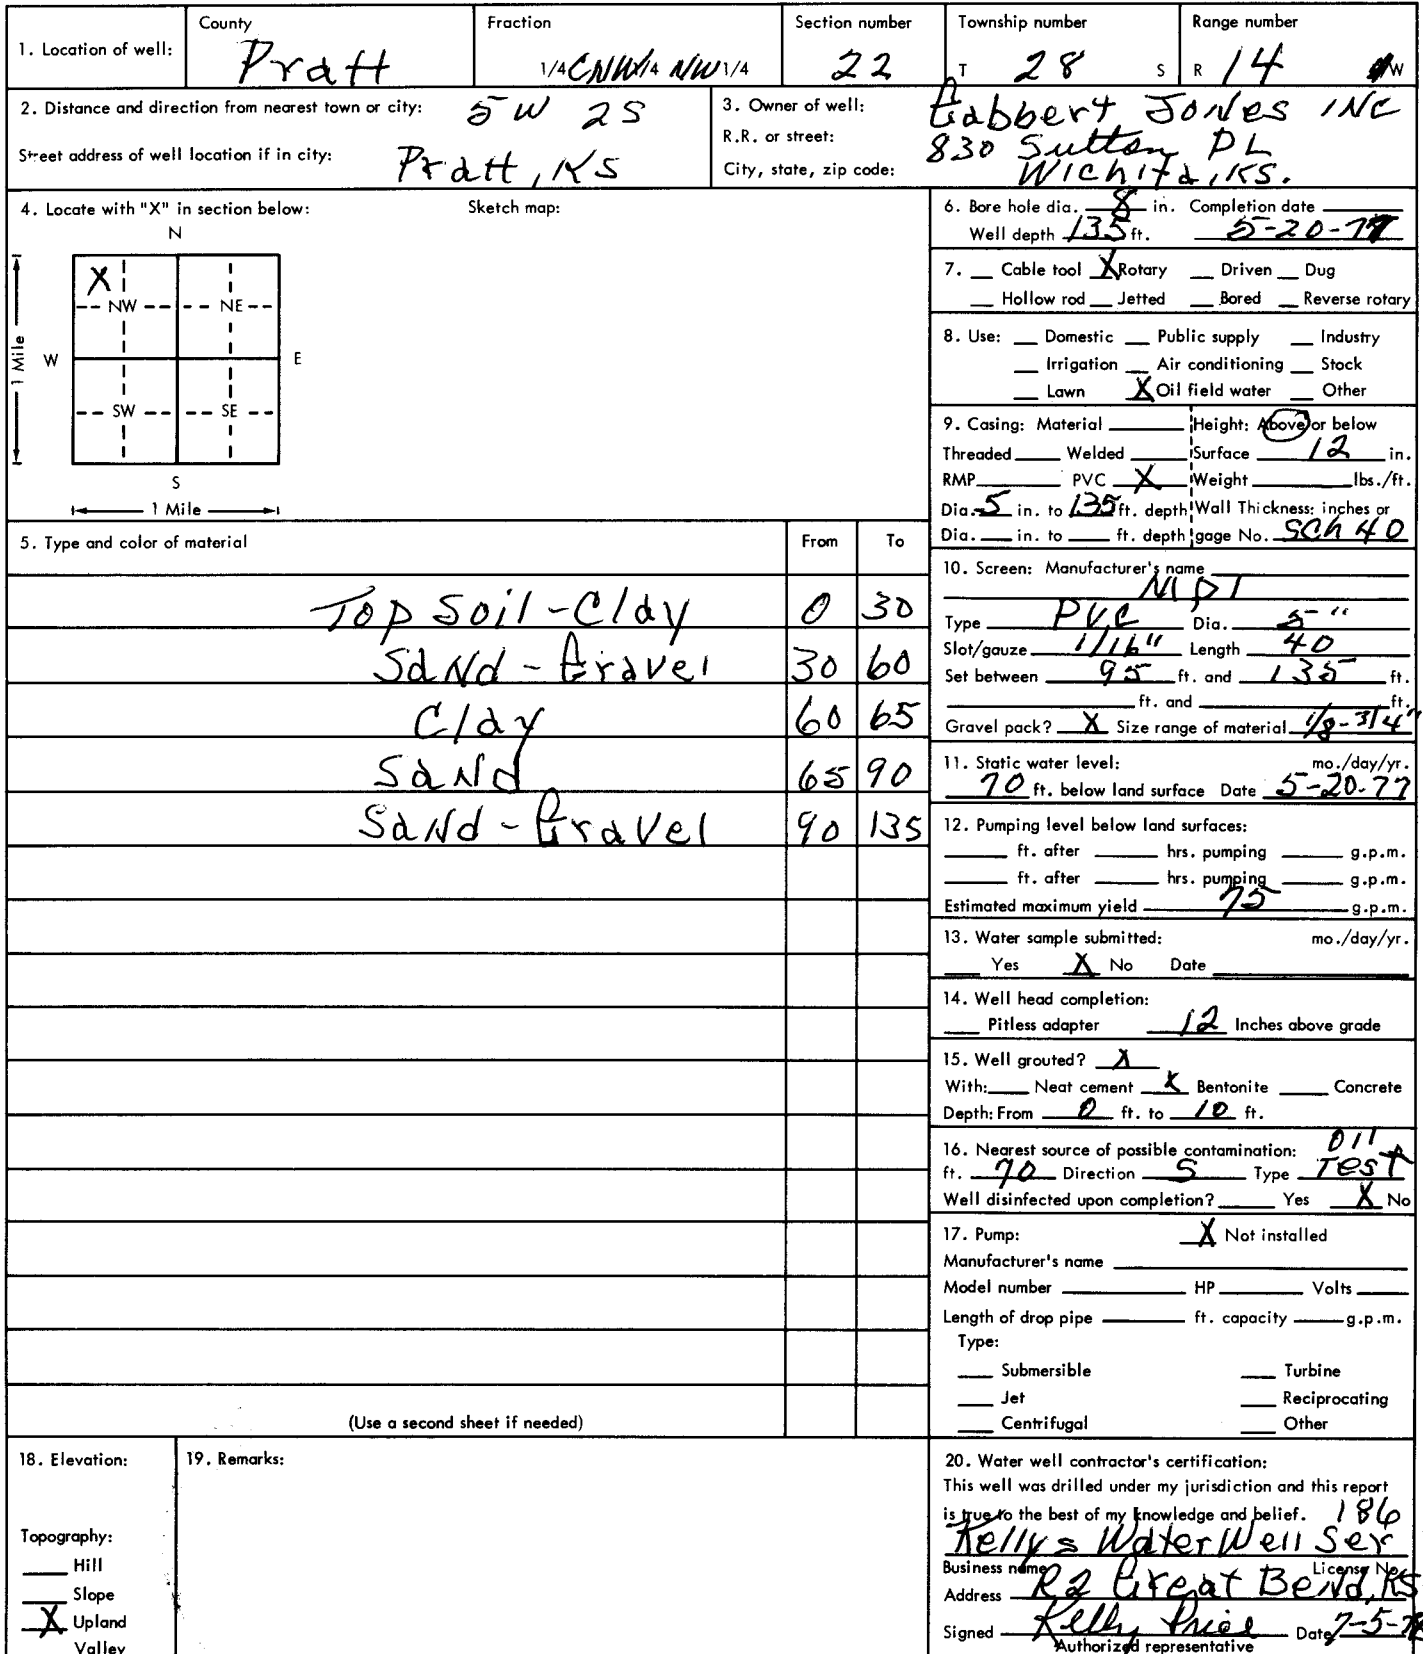 1. Location of well: County Pratt Fraction 1/4 CNW 1/4 NW 1/4 Section number 22 Township number T 28 S Range number R 14 W
2. Distance and direction from nearest town or city: 5 W 2S
Street address of well location if in city: Pratt, KS
3. Owner of well: Gabbert Jones INC
R.R. or street: 830 Sutton PL
City, state, zip code: Wichita, KS.
4. Locate with "X" in section below: Sketch map:
N
X
NW NE
W E
1 Mile
SW SE
S
1 Mile
5. Type and color of material From To
Top Soil - Clay 0 30
Sand - Gravel 30 60
Clay 60 65
Sand 65 90
Sand - Gravel 90 135
(Use a second sheet if needed)
6. Bore hole dia. 8 in. Completion date
Well depth 135 ft. 5-20-77
7. Cable tool X Rotary Driven Dug
Hollow rod Jetted Bored Reverse rotary
8. Use: Domestic Public supply Industry
Irrigation Air conditioning Stock
Lawn X Oil field water Other
9. Casing: Material Height: Above or below
Threaded Welded Surface 12 in.
RMP PVC X Weight lbs./ft.
Dia. 5 in. to 135 ft. depth Wall Thickness: inches or
Dia. in. to ft. depth gage No. Sch 40
10. Screen: Manufacturer's name
Type PVC Dia. 5"
Slot/gauze 1/16" Length 40
Set between 95 ft. and 135 ft.
ft. and ft.
Gravel pack? X Size range of material 1/8-3/4"
11. Static water level: mo./day/yr.
70 ft. below land surface Date 5-20-77
12. Pumping level below land surfaces:
ft. after hrs. pumping g.p.m.
ft. after hrs. pumping g.p.m.
Estimated maximum yield 75 g.p.m.
13. Water sample submitted: mo./day/yr.
Yes X No Date
14. Well head completion:
Pitless adapter 12 Inches above grade
15. Well grouted? X
With: Neat cement X Bentonite Concrete
Depth: From 0 ft. to 10 ft.
16. Nearest source of possible contamination: Oil
ft. 70 Direction S Type Test
Well disinfected upon completion? Yes X No
17. Pump: X Not installed
Manufacturer's name
Model number HP Volts
Length of drop pipe ft. capacity g.p.m.
Type:
Submersible Turbine
Jet Reciprocating
Centrifugal Other
18. Elevation:
Topography:
Hill
Slope
X Upland
Valley
19. Remarks:
20. Water well contractor's certification:
This well was drilled under my jurisdiction and this report
is true to the best of my knowledge and belief. 186
Kellys Water Well Ser
Business name License No.
Address R2 Great Bend, KS
Signed Kelly Price Date
Authorized representative